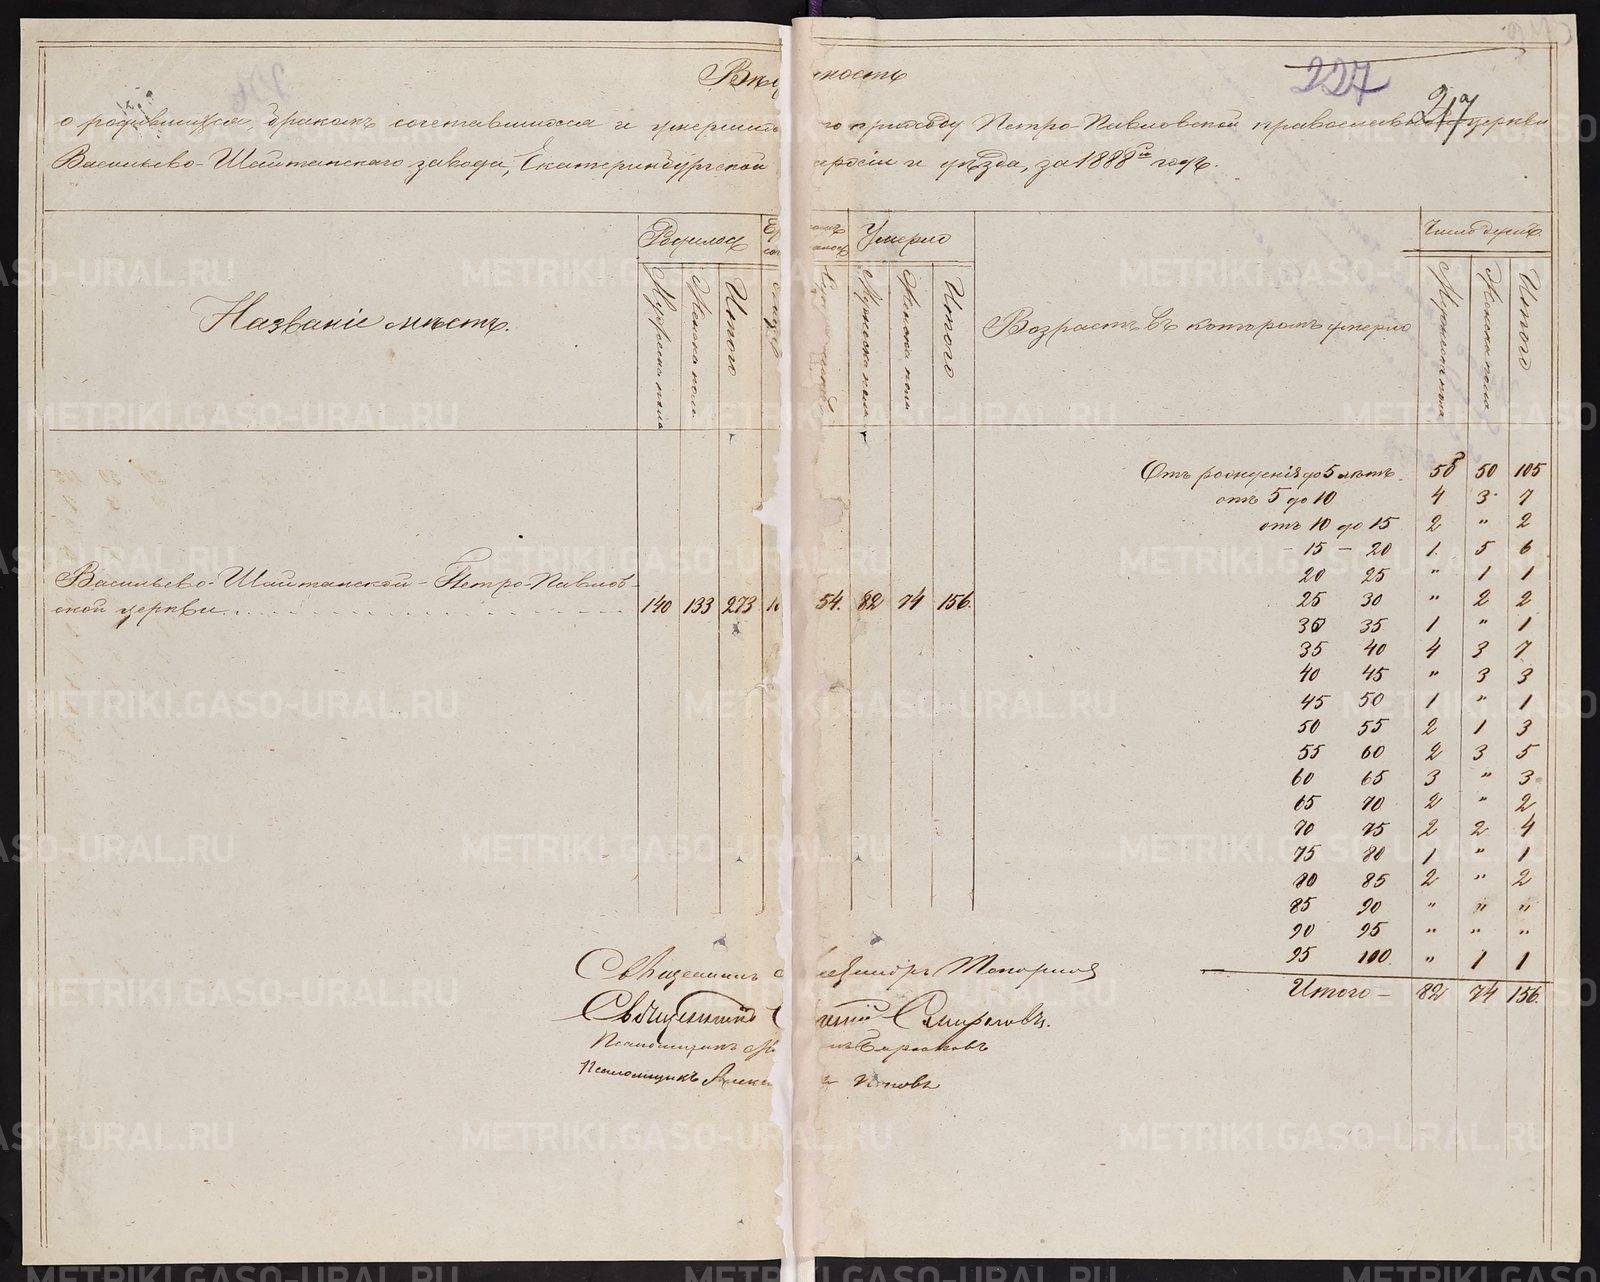 227
217
о родившихся, бракомъ сочетавшихся и умершихъ по приходу Петро-Павловской православной церкви
Васильево-Шайтанскаго завода, Екатеринбургской епархіи и уѣзда, за 1888й годъ.
Названіе мѣстъ.
Родилось
Умерло
Мужеска пола
Женска пола
Итого
Мужеска пола
Женска пола
Итого
Возрастъ въ которомъ умерло
Число душъ
Мужеска пола
Женска пола
Итого
Васильево-Шайтанской-Петро-Павлов-
ской церкви 140 133 273 54. 82 74 156.
Отъ рожденія до 5 лѣтъ. 50 105
отъ 5 до 10 4 3 7
отъ 10 до 15 2 " 2
- 15 - 20 1 5 6
20 25 " 1 1
25 30 " 2 2
30 35 1 " 1
35 40 4 3 7
40 45 " 3 3
45 50 1 " 1
50 55 2 1 3
55 60 2 3 5
60 65 3 " 3
65 70 2 " 2
70 75 2 2 4
75 80 1 " 1
80 85 2 " 2
85 90 " " "
90 95 " " "
95 100 " 1 1
Итого - 82 74 156.
Священникъ Топорковъ
Священникъ Смирновъ.
Псаломщикъ Бирюковъ
Псаломщикъ Поповъ
METRIKI.GASO-URAL.RU